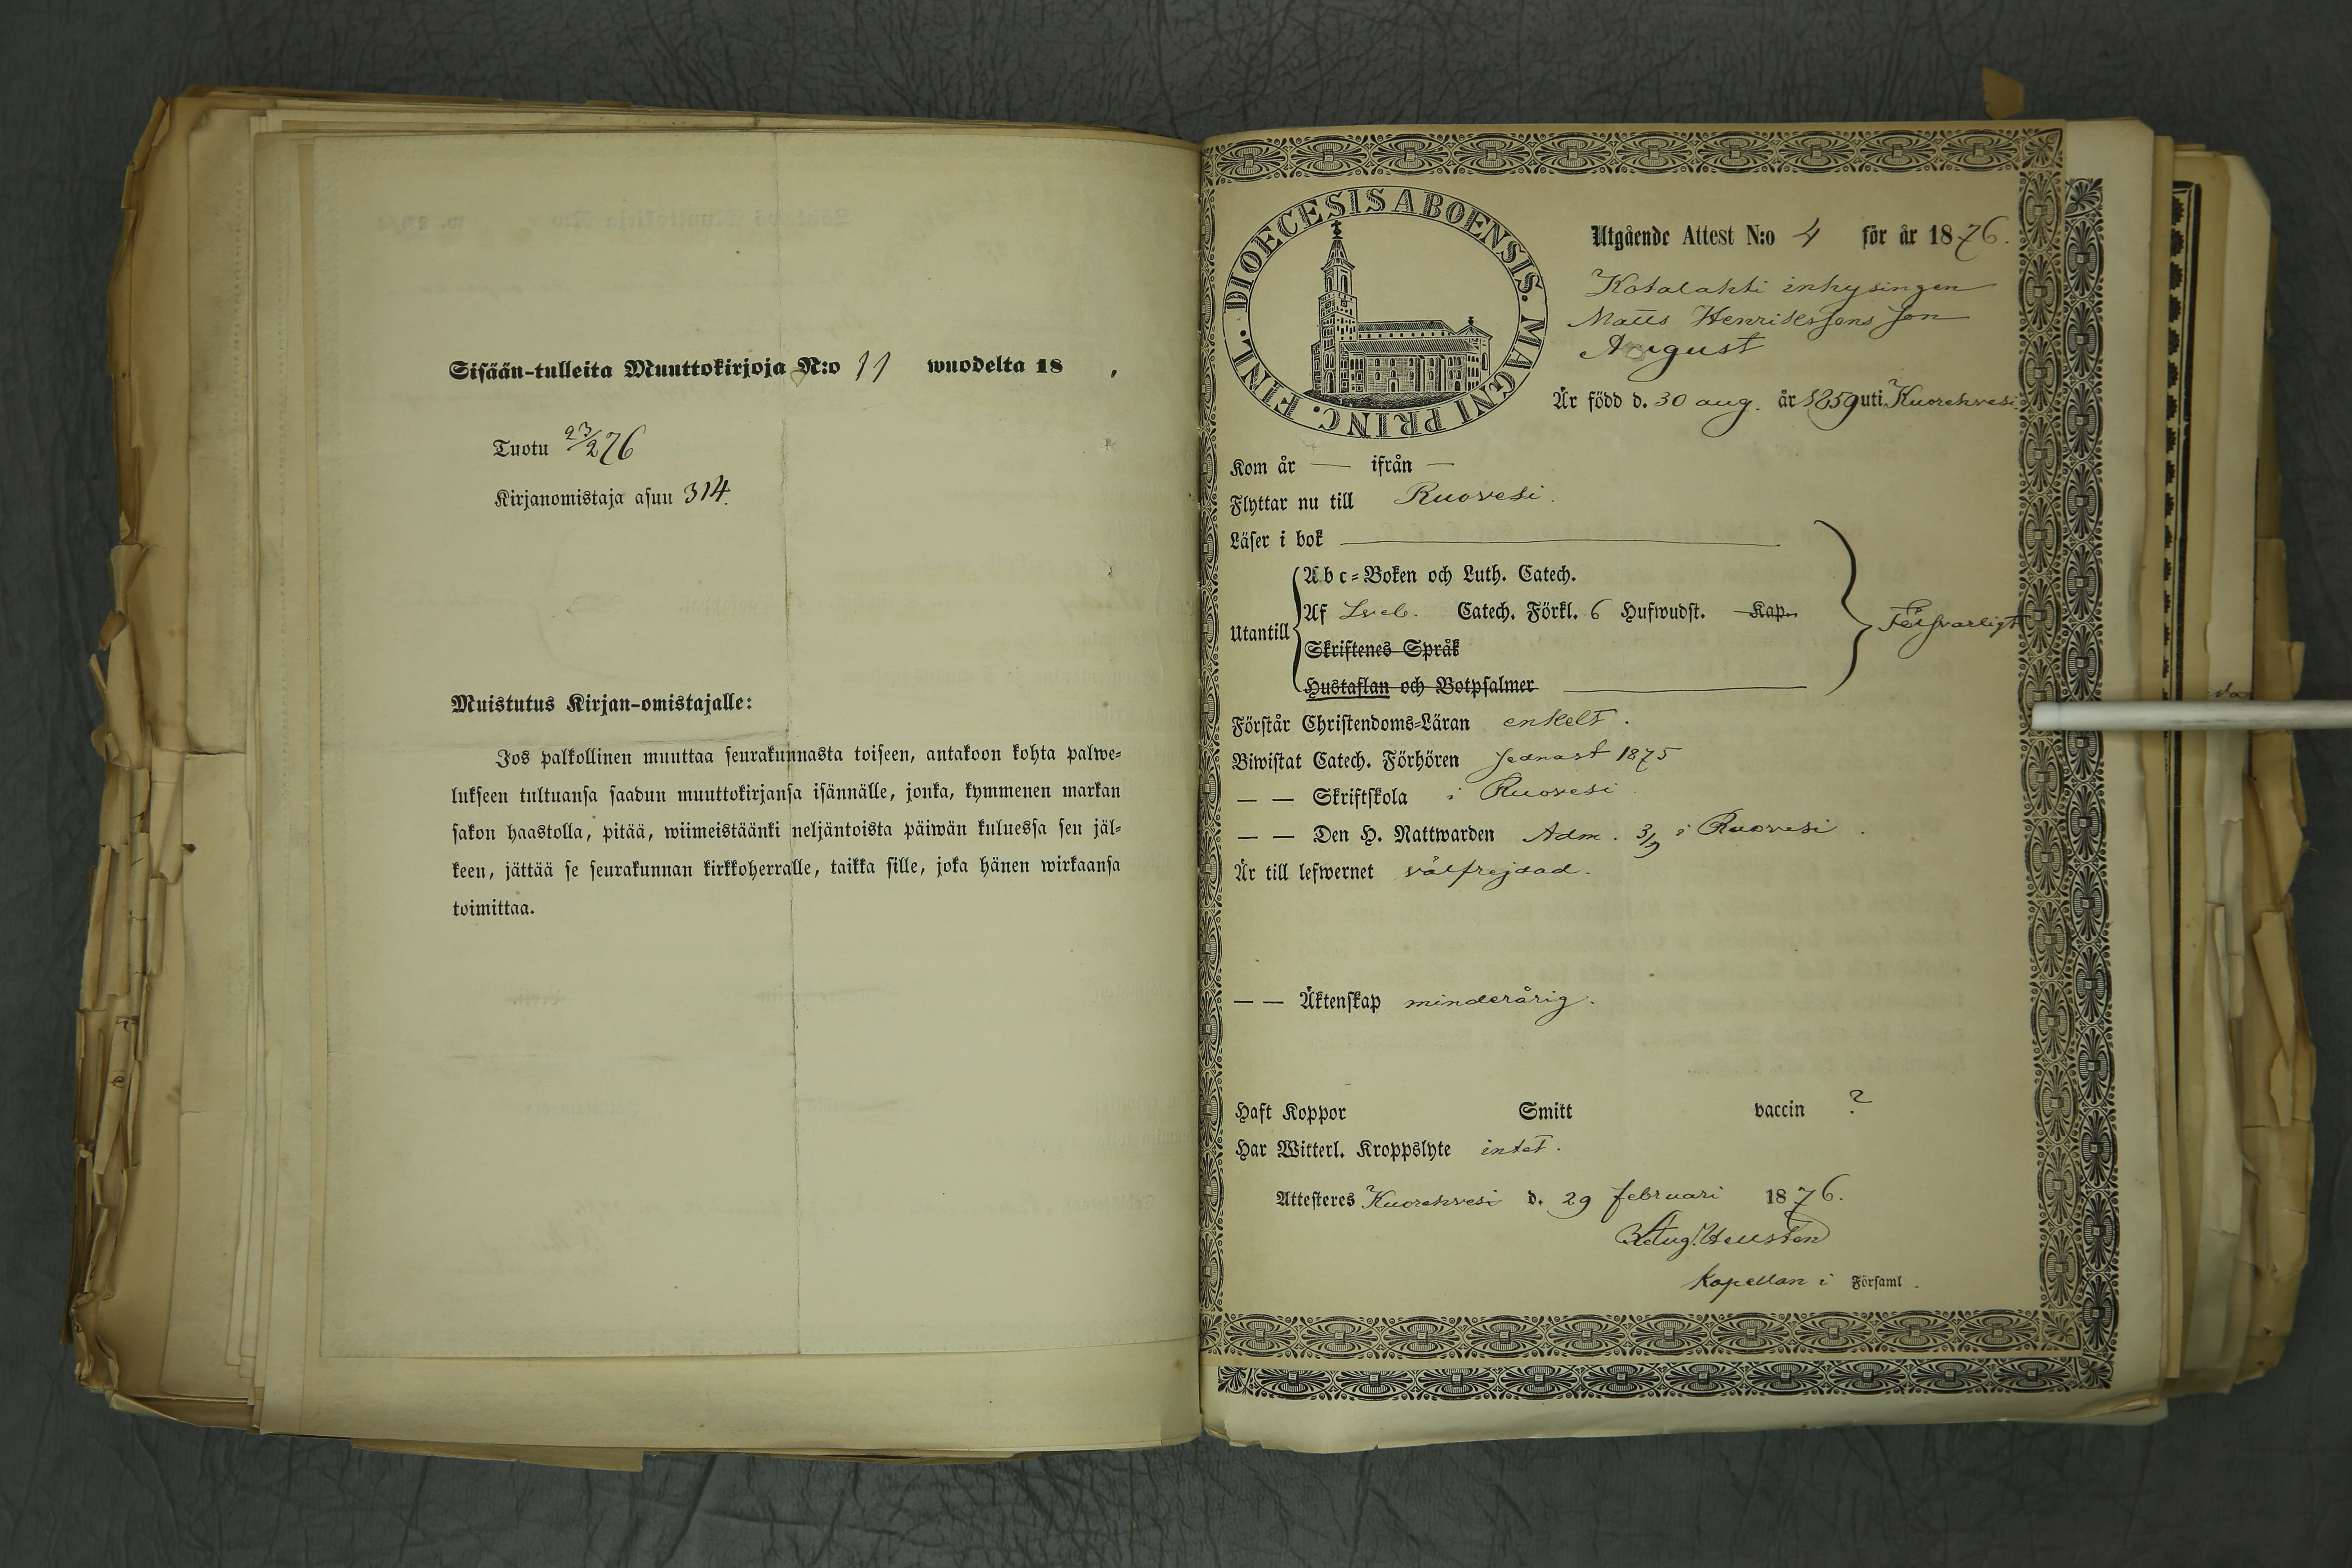 Sisään-tulleita Muuttokirjoja N:o 11 wuodelta 18 .
Tuotu 23/2 76
Kirjanomistaja asuu 314.
Muistutus Kirjan-omistajalle:
Jos palkollinen muuttaa seurakunnasta toiseen, antakoon kohta palwe-
lukseen tultuansa saadun muuttokirjansa isännälle, jonka, kymmenen markan
sakon haastolla, pitää, wiimeistäänki neljäntoista päiwän kuluessa sen jäl-
keen, jättää se seurakunnan kirkkoherralle, taikka sille, joka hänen wirkaansa
toimittaa.
DIOECESIS ABOENSIS. MAGNI PRINC. FINL.
Utgående Attest N:o 4 för år 1876.
Kotalahti inhysingen
Matts Henrikssons son
August
Är född d. 30 aug. år 1859 uti Kuorehvesi
Kom år — ifrån —
Flyttar nu till Ruovesi.
Läser i bok
Utantill
Abc-Boken och Luth. Catech.
Af Sveb. Catech. Förkl. 6 Hufwudst. Kap.
Skriftenes Språk
Hustaflan och Botpsalmer
Försvarligt
Förstår Christendoms-Läran enkelt.
Biwistat Catech. Förhören sednast 1875
— — Skriftskola i Ruovesi
— — Den H. Nattwarden Adm. 3/9 i Ruovesi.
Är till lefwernet välfrejdad.
— — Äktenskap minderårig.
Haft Koppor Smitt vaccin ?
Har Witterl. Kroppslyte intet.
Attesteres Kuorehvesi d. 29 februari 1876.
Kapellan i Församl.